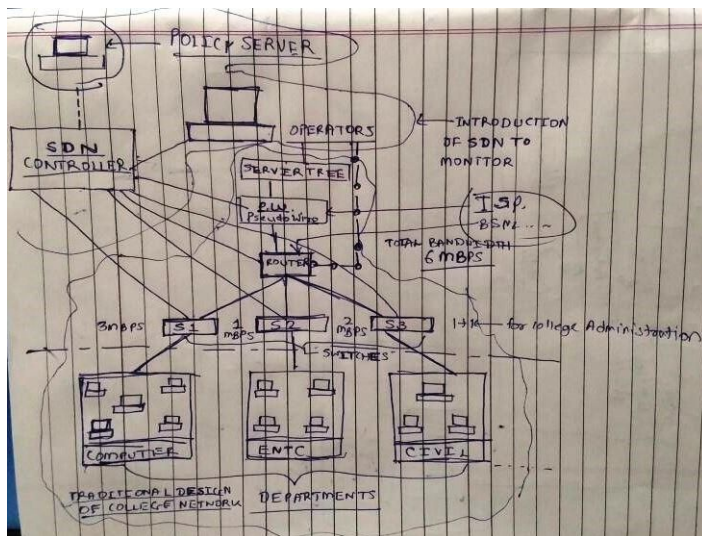 POLICY SERVER
SDN
CONTROLLER
OPERATORS
INTRODUCTION
OF SDN TO
MONITOR
SERVER TREE
P.W.
Pseudo Wire
ISP.
BSNL...
TOTAL BANDWIDTH
6 MBPS
ROUTER
3MBPS
S1
1
MBPS
S2
2
MBPS
S3
for college Administration
SWITCHES
COMPUTER
ENTC
CIVIL
TRADITIONAL DESIGN
OF COLLEGE NETWORK
DEPARTMENTS